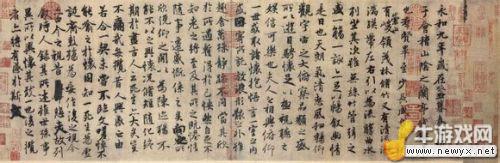 永和九年歲在癸丑暮春之初會
于會稽山陰之蘭亭脩稧事
也羣賢畢至少長咸集此地
有崇山峻領茂林脩竹又有清流激
湍暎帶左右引以為流觴曲水
列坐其次雖無絲竹管弦之
盛一觴一詠亦足以暢敘幽情
是日也天朗氣清惠風和暢仰
觀宇宙之大俯察品類之盛
所以遊目騁懷足以極視聽之
娛信可樂也夫人之相與俯仰
一世或取諸懷抱悟言一室之內
或因寄所託放浪形骸之外雖
趣舍萬殊靜躁不同當其欣
於所遇暫得於己怏然自足不
知老之將至及其所之既惓情
隨事遷感慨係之矣向之所
欣俛仰之閒以為陳迹猶不
能不以之興懷況脩短隨化終
期於盡古人云死生亦大矣豈
不痛哉每攬昔人興感之由
若合一契未嘗不臨文嗟悼不
能喻之於懷固知一死生為虛
誕齊彭殤為妄作後之視今
亦由今之視昔悲夫故列
敘時人錄其所述雖世殊事
異所以興懷其致一也後之攬
者亦將有感於斯文
牛游戏网
www.newyx.net